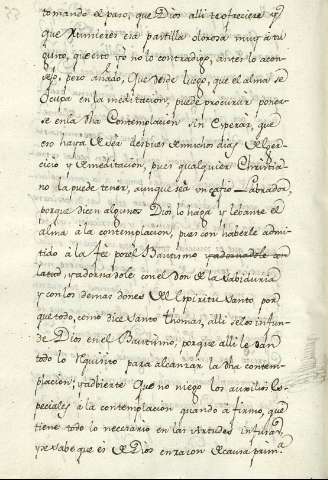 tomando el paso, que Dios alli te ofreciere, y
que Ximieres esa pastilla olorosa muy à tu
gusto, que esto yo no lo contradigo, antes lo acon-
sejo; pero añado, Que desde luego, que el alma se
ocupa en la meditacion, puede procurar poner-
se en la dha Contemplacion sin esperar, que
eso haya de ser despues de muchos dias de exer-
cicio y de meditacion, pues qualquier Christia-
no la puede tener, aunque sea un Labrador,
porque dicen algunos Dios lo haga y levante el
alma à la contemplacion, pues con haberle admi-
tido à la fee por el Bautismo y adornadole con
y adornadole con el Don de la Sabiduria
y con los demas dones del Espiritu Santo por
que todo, como dice Santo Thomas, alli se los infun-
de Dios en el Bautismo, porque alli le dan
todo lo requisito para alcanzar la dha contem-
placion; y advierte Que no niego los auxilios Es-
peciales à la contemplacion quando afirmo, que
tiene todo lo necesario en las virtudes infusas,
y se sabe que es de Dios en razon de causa prima